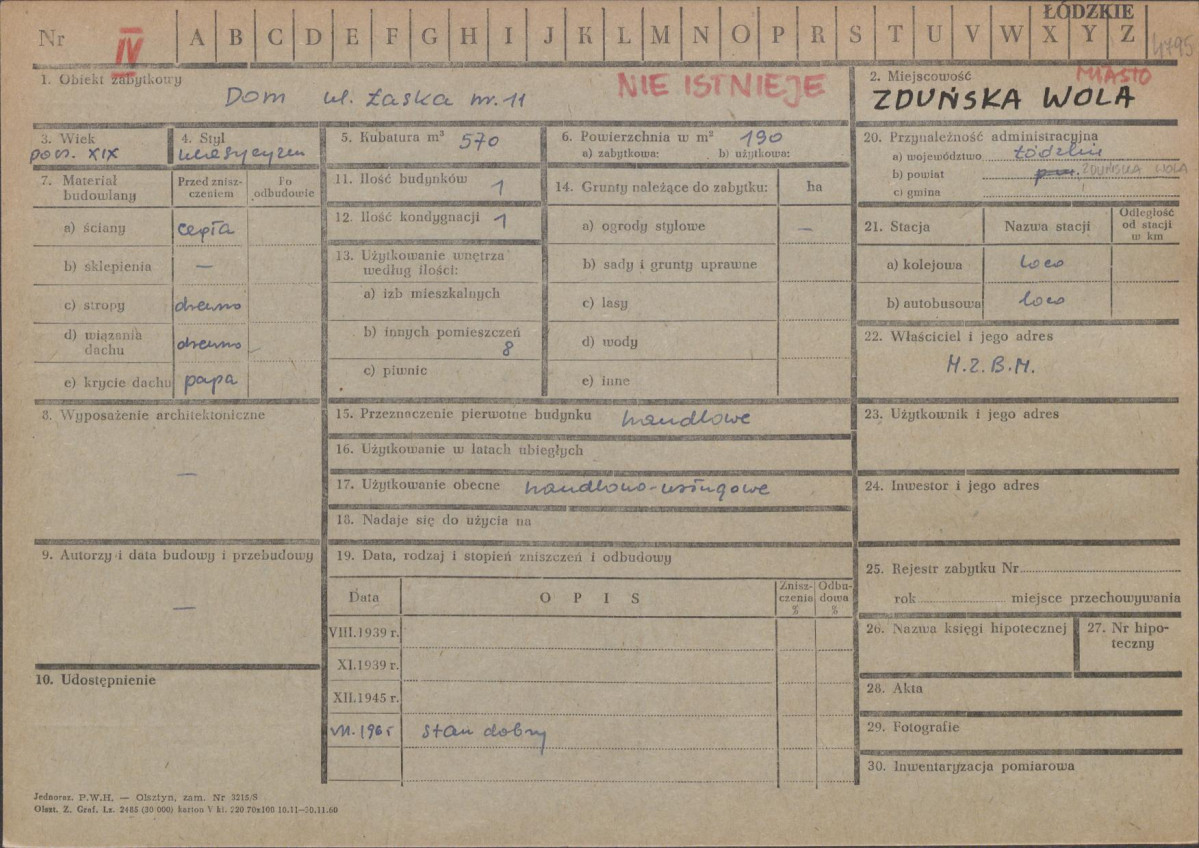 ŁÓDZKIE
Nr IV A B C D E F G H I J K L M N O P R S T U V W X Y Z 4795
1. Obiekt zabytkowy
Dom ul. Łaska nr. 11
NIE ISTNIEJE
2. Miejscowość MIASTO
ZDUŃSKA WOLA
3. Wiek
poł. XIX
4. Styl
klasycyzm
5. Kubatura m³ 570
6. Powierzchnia w m² 190
a) zabytkowa: b) użytkowa:
7. Materiał budowlany
Przed zniszczeniem
Po odbudowie
a) ściany cegła
b) sklepienia —
c) stropy drewno
d) wiązania dachu drewno
e) krycie dachu papa
8. Wyposażenie architektoniczne
—
9. Autorzy i data budowy i przebudowy
—
10. Udostępnienie
11. Ilość budynków 1
12. Ilość kondygnacji 1
13. Użytkowanie wnętrza
według ilości:
a) izb mieszkalnych
b) innych pomieszczeń
8
c) piwnic
14. Grunty należące do zabytku: ha
a) ogrody stylowe —
b) sady i grunty uprawne
c) lasy
d) wody
e) inne
15. Przeznaczenie pierwotne budynku handlowe
16. Użytkowanie w latach ubiegłych
17. Użytkowanie obecne handlowo-usługowe
18. Nadaje się do użycia na
19. Data, rodzaj i stopień zniszczeń i odbudowy
Data OPIS Zniszczenia % Odbudowa %
VIII.1939 r.
XI.1939 r.
XII.1945 r.
VII.1965 stan dobry
20. Przynależność administracyjna
a) województwo łódzkie
b) powiat ZDUŃSKA WOLA
c) gmina
21. Stacja Nazwa stacji Odległość od stacji w km
a) kolejowa loco
b) autobusowa loco
22. Właściciel i jego adres
M.Z.B.M.
23. Użytkownik i jego adres
24. Inwestor i jego adres
25. Rejestr zabytku Nr
rok miejsce przechowywania
26. Nazwa księgi hipotecznej
27. Nr hipoteczny
28. Akta
29. Fotografie
30. Inwentaryzacja pomiarowa
Jednoraz. P.W.H. — Olsztyn, zam. Nr 3215/S
Olszt. Z. Graf. Lz. 2485 (30 000) karton V kl. 220 70x100 10.11—30.11.60